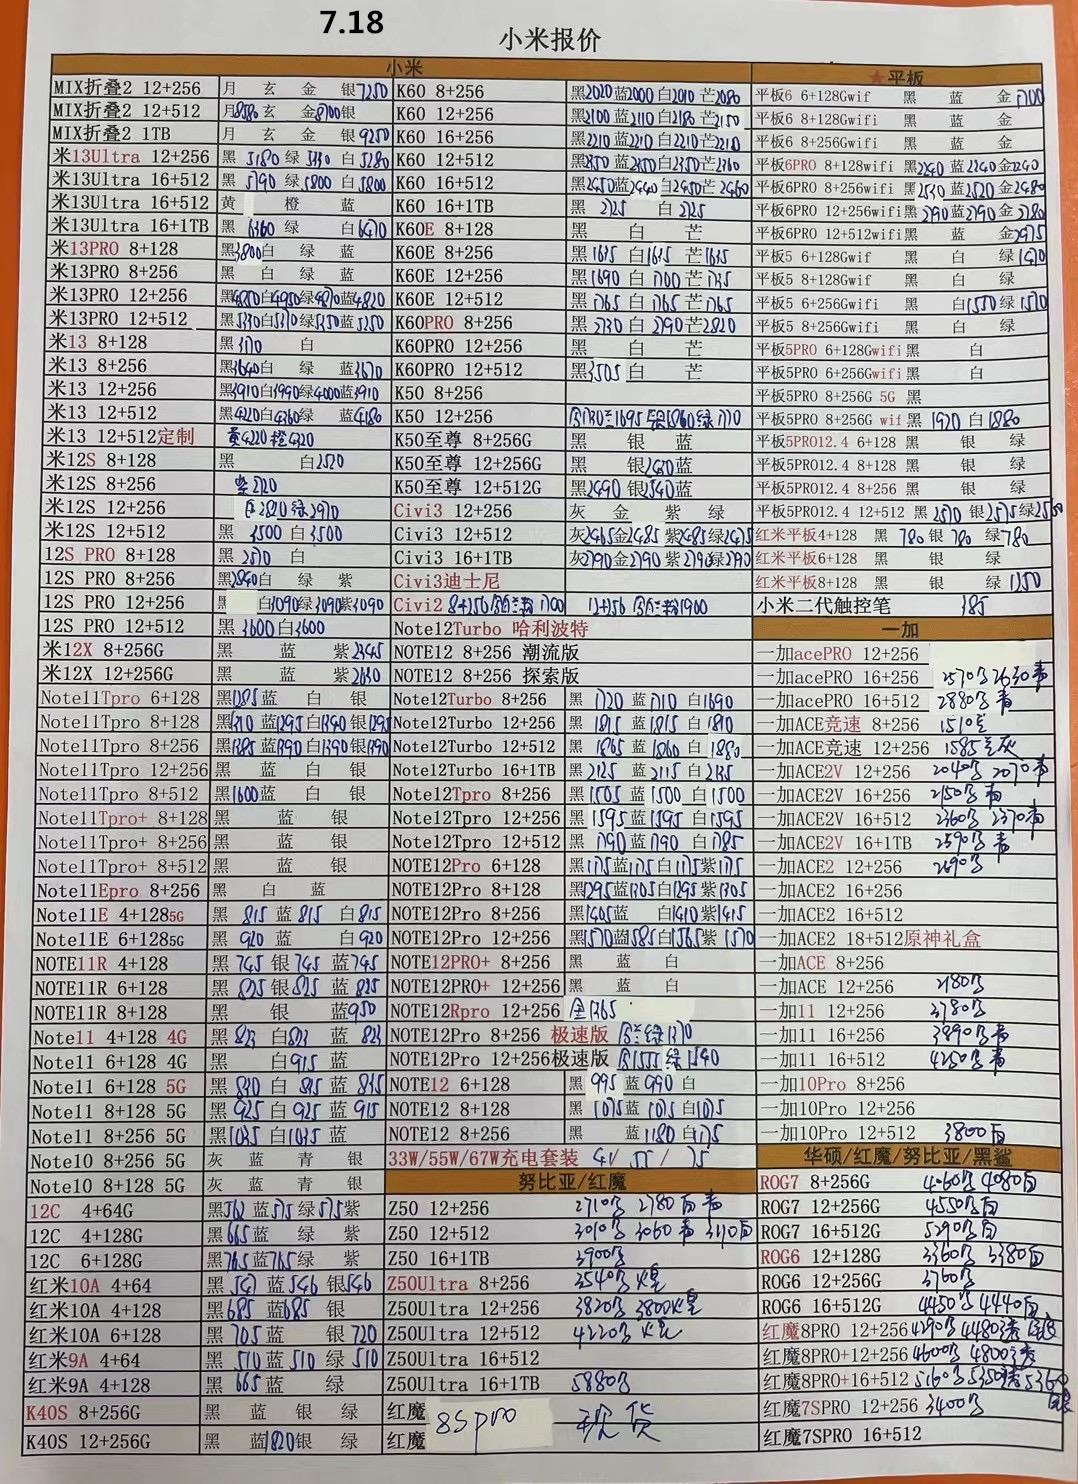 7.18
小米报价
小米
MIX折叠2 12+256 月 玄 金 银7250
MIX折叠2 12+512 月8580玄 金8700银
MIX折叠2 1TB 月 玄 金 银9250
米13Ultra 12+256 黑 5180 绿 5330 白 5280
米13Ultra 16+512 黑 5790 绿 5800 白 5800
米13Ultra 16+512 黄 橙 蓝
米13Ultra 16+1TB 黑 6360 绿 白6470
米13PRO 8+128 黑3800白 绿 蓝
米13PRO 8+256 黑 白 绿 蓝
米13PRO 12+256 黑4850白4950绿4870蓝4820
米13PRO 12+512 黑5330白5370绿5350蓝5250
米13 8+128 黑3170 白
米13 8+256 黑3640白 绿 蓝3670
米13 12+256 黑3910白3990绿4000蓝3910
米13 12+512 黑4220白4360绿 蓝4180
米13 12+512定制 黄4220橙4320
米12S 8+128 黑 白2520
米12S 8+256 紫2720
米12S 12+256 白2820绿2970
米12S 12+512 黑 3500 白3500
12S PRO 8+128 黑2570 白
12S PRO 8+256 黑2840白 绿 紫
12S PRO 12+256 黑 白3090绿3090紫3090
12S PRO 12+512 黑 3600白3600
米12X 8+256G 黑 蓝 紫2345
米12X 12+256G 黑 蓝 紫2630
Note11Tpro 6+128 黑1285蓝 白 银
Note11Tpro 8+128 黑1310蓝1295白1340银1295
Note11Tpro 8+256 黑1385蓝1390白1390银1390
Note11Tpro 12+256 黑 蓝 白 银
Note11Tpro 8+512 黑1600蓝 白 银
Note11Tpro+ 8+128 黑 蓝 银
Note11Tpro+ 8+256 黑 蓝 银
Note11Tpro+ 8+512 黑 蓝 银
Note11Epro 8+256 黑 白 蓝
Note11E 4+1285G 黑 815 蓝 815 白815
Note11E 6+1285G 黑 920 蓝 白920
NOTE11R 4+128 黑 745 银 745 蓝745
NOTE11R 6+128 黑 825 银825 蓝 825
NOTE11R 8+128 黑 银 蓝950
Note11 4+128 4G 黑 823 白823 蓝 823
Note11 6+128 4G 黑 白915 蓝
Note11 6+128 5G 黑 830 白 835 蓝 835
Note11 8+128 5G 黑 925 白 925 蓝 915
Note11 8+256 5G 黑1035 白1035 蓝
Note10 8+256 5G 灰 蓝 青 银
Note10 8+128 5G 灰 蓝 青 银
12C 4+64G 黑562 蓝575绿575紫
12C 4+128G 黑665 蓝 绿 紫
12C 6+128G 黑765蓝765绿 紫
红米10A 4+64 黑 547 蓝546 银546
红米10A 4+128 黑685 蓝685 银
红米10A 6+128 黑 705 蓝 银 720
红米9A 4+64 黑 510 蓝510 绿 510
红米9A 4+128 黑 665 蓝 绿
K40S 8+256G 黑 蓝 银 绿
K40S 12+256G 黑 蓝1820银 绿
K60 8+256 黑2020蓝2000白2010芒2080
K60 12+256 黑2100蓝2110白2180芒2150
K60 16+256 黑2210蓝2210白2210芒2210
K60 12+512 黑2350蓝2350白2350芒2360
K60 16+512 黑2450蓝2440白2450芒2460
K60 16+1TB 黑 2725 白 2725
K60E 8+128 黑 白 芒
K60E 8+256 黑1635 白1615 芒1635
K60E 12+256 黑1690 白1700 芒1735
K60E 12+512 黑1765 白1765 芒1765
K60PRO 8+256 黑2730 白 2790 芒2820
K60PRO 12+256 黑 白 芒
K60PRO 12+512 黑3505 白 芒
K50 8+256
K50 12+256 金1730兰1695银1860绿1710
K50至尊 8+256G 黑 银 蓝
K50至尊 12+256G 黑 银2430蓝
K50至尊 12+512G 黑2490 银2540蓝
Civi3 12+256 灰 金 紫 绿
Civi3 12+512 灰2465金2485 紫2485绿2475
Civi3 16+1TB 灰2790金2790 紫2790绿2790
Civi3迪士尼
Civi2 8+256 1700 12+256 1900
Note12Turbo 哈利波特
NOTE12 8+256 潮流版
NOTE12 8+256 探索版
Note12Turbo 8+256 黑 1720 蓝 1710 白1690
Note12Turbo 12+256 黑 1815 蓝 1815 白1810
Note12Turbo 12+512 黑 1865 蓝 1860 白1880
Note12Turbo 16+1TB 黑 2125 蓝 2115 白2135
Note12Tpro 8+256 黑 1505 蓝 1500 白1500
Note12Tpro 12+256 黑 1595 蓝1595 白1595
Note12Tpro 12+512 黑 1790 蓝1790 白1785
NOTE12Pro 6+128 黑1175蓝1175白1175紫1175
NOTE12Pro 8+128 黑1295蓝1305白1295紫1305
NOTE12Pro 8+256 黑1405蓝 白1410紫1415
NOTE12Pro 12+256 黑1570蓝1585白1565紫1570
NOTE12PRO+ 8+256 黑 蓝 白
NOTE12PRO+ 12+256 黑 蓝 白
NOTE12Rpro 12+256 金1365
NOTE12Pro 8+256 极速版 金兰绿1370
NOTE12Pro 12+256极速版 金1555 绿1540
NOTE12 6+128 黑 995 蓝990 白
NOTE12 8+128 黑 1075蓝 1075白1075
NOTE12 8+256 黑 蓝1180白1175
33W/55W/67W充电套装 41/ 55 / 75
努比亚/红魔
Z50 12+256 2710 2780
Z50 12+512 3010 3060
Z50 16+1TB 3900
Z50Ultra 8+256 3540
Z50Ultra 12+256 3820 3800
Z50Ultra 12+512 4220
Z50Ultra 16+512
Z50Ultra 16+1TB 5880
红魔 8Spro 现货
红魔
★平板
平板6 6+128Gwif 黑 蓝 金1700
平板6 8+128Gwifi 黑 蓝 金
平板6 8+256Gwifi 黑 蓝 金
平板6PRO 8+128wifi 黑2240 蓝2240金2240
平板6PRO 8+256wifi 黑2530 蓝2520 金2480
平板6PRO 12+256wifi黑2790 蓝2790 金2780
平板6PRO 12+512wifi黑 蓝 金2975
平板5 6+128Gwifi 黑 白 绿1470
平板5 8+128Gwifi 黑 白 绿
平板5 6+256Gwifi 黑 白1550绿1570
平板5 8+256Gwifi 黑 白 绿
平板5PRO 6+128Gwifi 黑 白
平板5PRO 6+256Gwifi 黑 白
平板5PRO 8+256G 5G 黑
平板5PRO 8+256G wif 黑 1920 白1880
平板5PRO12.4 6+128 黑 银 绿
平板5PRO12.4 8+128 黑 银 绿
平板5PRO12.4 8+256 黑 银 绿
平板5PRO12.4 12+512 黑 2570 银2575绿2560
红米平板4+128 黑 780 银 780 绿780
红米平板6+128 黑 银 绿
红米平板8+128 黑 银 绿 1250
小米二代触控笔 385
一加
一加acePRO 12+256
一加acePRO 16+256 2570 2630青
一加acePRO 16+512 2880 青
一加ACE竞速 8+256 1510
一加ACE竞速 12+256 1585
一加ACE2V 12+256 2040 2070青
一加ACE2V 16+256 2150
一加ACE2V 16+512 2360 2370青
一加ACE2V 16+1TB 2590
一加ACE2 12+256 2690
一加ACE2 16+256
一加ACE2 16+512
一加ACE2 18+512原神礼盒
一加ACE 8+256
一加ACE 12+256 2180
一加11 12+256 3780
一加11 16+256 3890
一加11 16+512 4250
一加10Pro 8+256
一加10Pro 12+256
一加10Pro 12+512 3800白
华硕/红魔/努比亚/黑鲨
ROG7 8+256G 4060 4080白
ROG7 12+256G 4550白
ROG7 16+512G 5290白
ROG6 12+128G 3360 3380白
ROG6 12+256G 3760
ROG6 16+512G 4450 4440白
红魔8PRO 12+256 4290 4480
红魔8PRO+12+256 4600 4800
红魔8PRO+16+512 5160 5350 5360
红魔7SPRO 12+256 3400
红魔7SPRO 16+512